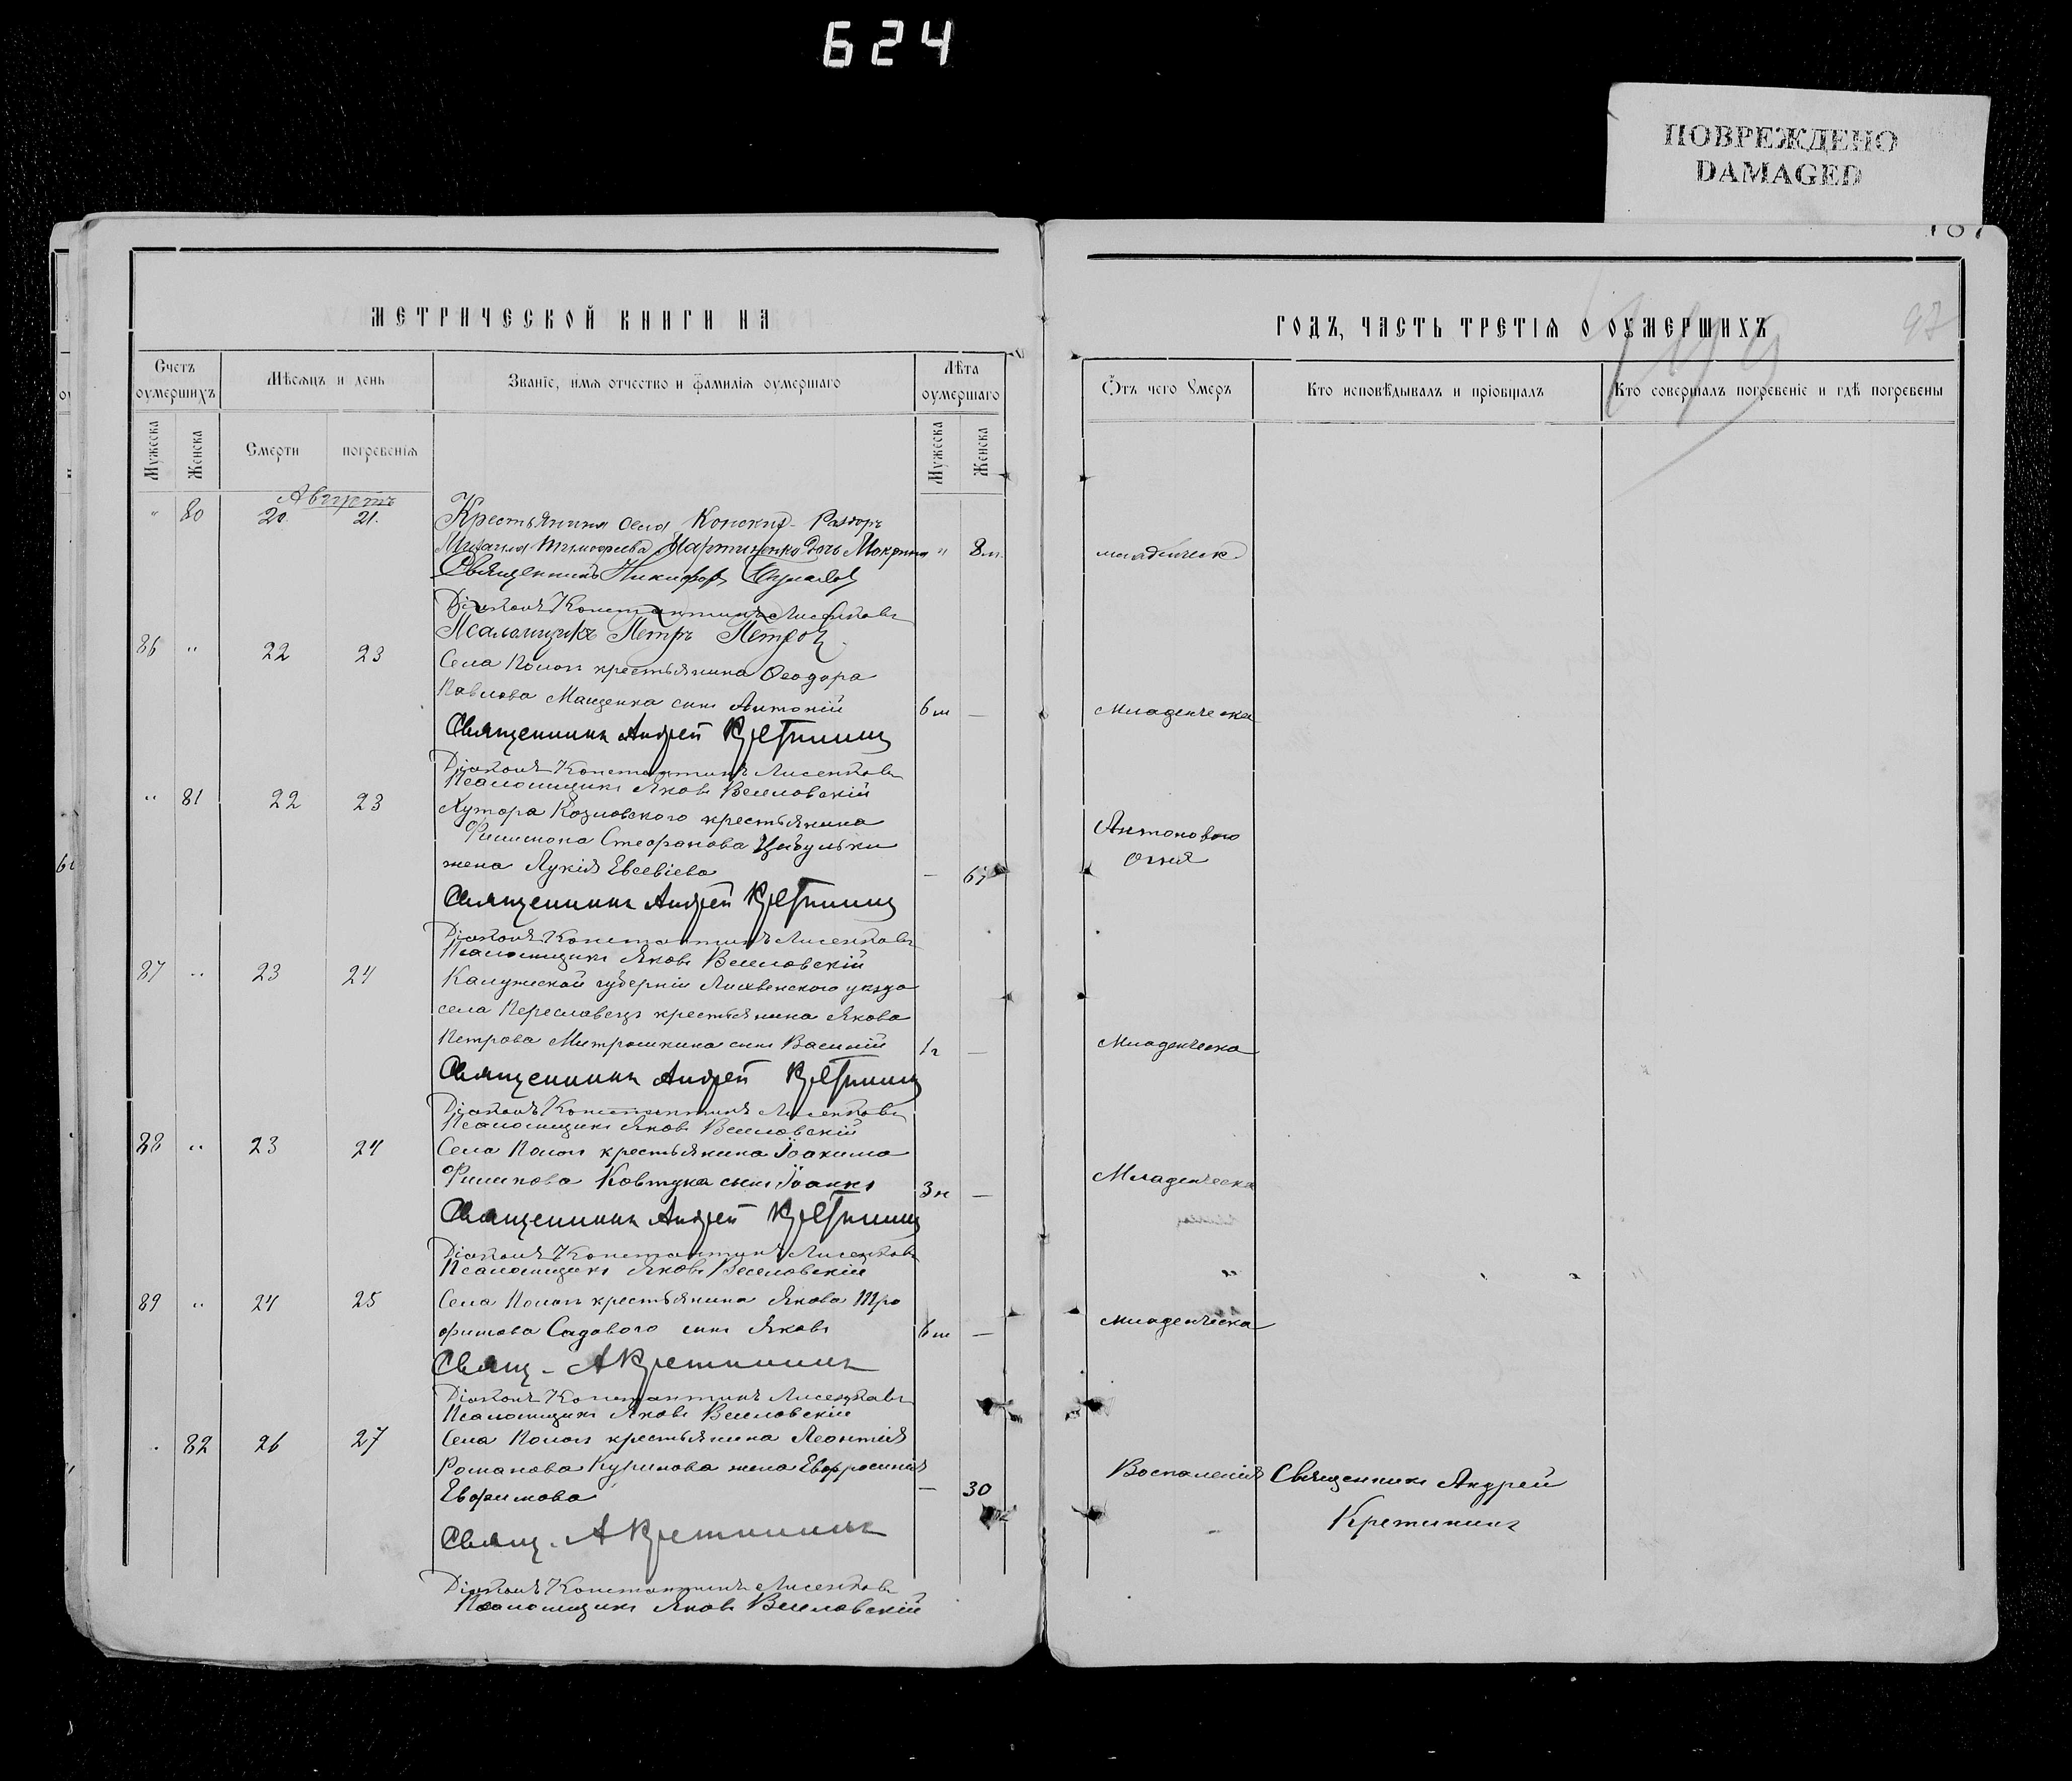 624
ПОВРЕЖДЕНО
DAMAGED
187
МЕТРИЧЕСКОЙ КНИГИ НА
Счетъ оумершихъ
Мѣсяцъ и день
Званіе, имя отчество и фамилія оумершаго
Лѣта оумершаго
Мужеска
Женска
Смерти
погребенія
Мужеска
Женска
Августъ
" 80 20. 21. Крестьянина села Конскихъ Раздоръ
Михаила Тимофеева Мартиненко дочь Мокрина " 8 м.
Священникъ Никифоръ
Діаконъ Константинъ Лисенковъ
Псаломщикъ Петръ Петров
86 " 22 23 Села Пологъ крестьянина Ѳеодора
Павлова Мащенка сынъ Антоній 6 м —
Священникъ Андрей Кретининъ
Діаконъ Константинъ Лисенковъ
Псаломщикъ Яковъ Веселовскій
" 81 22 23 Хутора Козловского крестьянина
Филимона Стефанова Цыбульки
жена Лукія Евсевіева — 67
Священникъ Андрей Кретининъ
Діаконъ Константинъ Лисенковъ
Псаломщикъ Яковъ Веселовскій
87 " 23 24 Калужской губерніи Лихвенского уѣзда
села Переславецъ крестьянина Якова
Петрова Митрошкина сынъ Василій 1 г —
Священникъ Андрей Кретининъ
Діаконъ Константинъ Лисенковъ
Псаломщикъ Яковъ Веселовскій
88 " 23 24 Села Пологъ крестьянина Іоакима
Филипова Ковтуна сынъ Іоаннъ 3 н —
Священникъ Андрей Кретининъ
Діаконъ Константинъ Лисенковъ
Псаломщикъ Яковъ Веселовскій
89 " 24 25 Села Пологъ крестьянина Якова Тро
фимова Садового сынъ Яковъ 6 м —
Свящ. А Кретининъ
Діаконъ Константинъ Лисенковъ
Псаломщикъ Яковъ Веселовскій
" 82 26 27 Села Пологъ крестьянина Леонтія
Романова Куринова жена Евфросинія
Евфимова — 30
Свящ. А Кретининъ
Діаконъ Константинъ Лисенковъ
Псаломщикъ Яковъ Веселовскій
ГОДЪ, ЧАСТЬ ТРЕТІЯ О ОУМЕРШИХЪ
97
Отъ чего умеръ
Кто исповѣдывалъ и пріобщалъ
Кто совершалъ погребеніе и гдѣ погребены
младенческ
Младенческа
Антонового
огня
Младенческа
Младенческа
Младенческа
Воспаленія Священникъ Андрей
Кретининъ